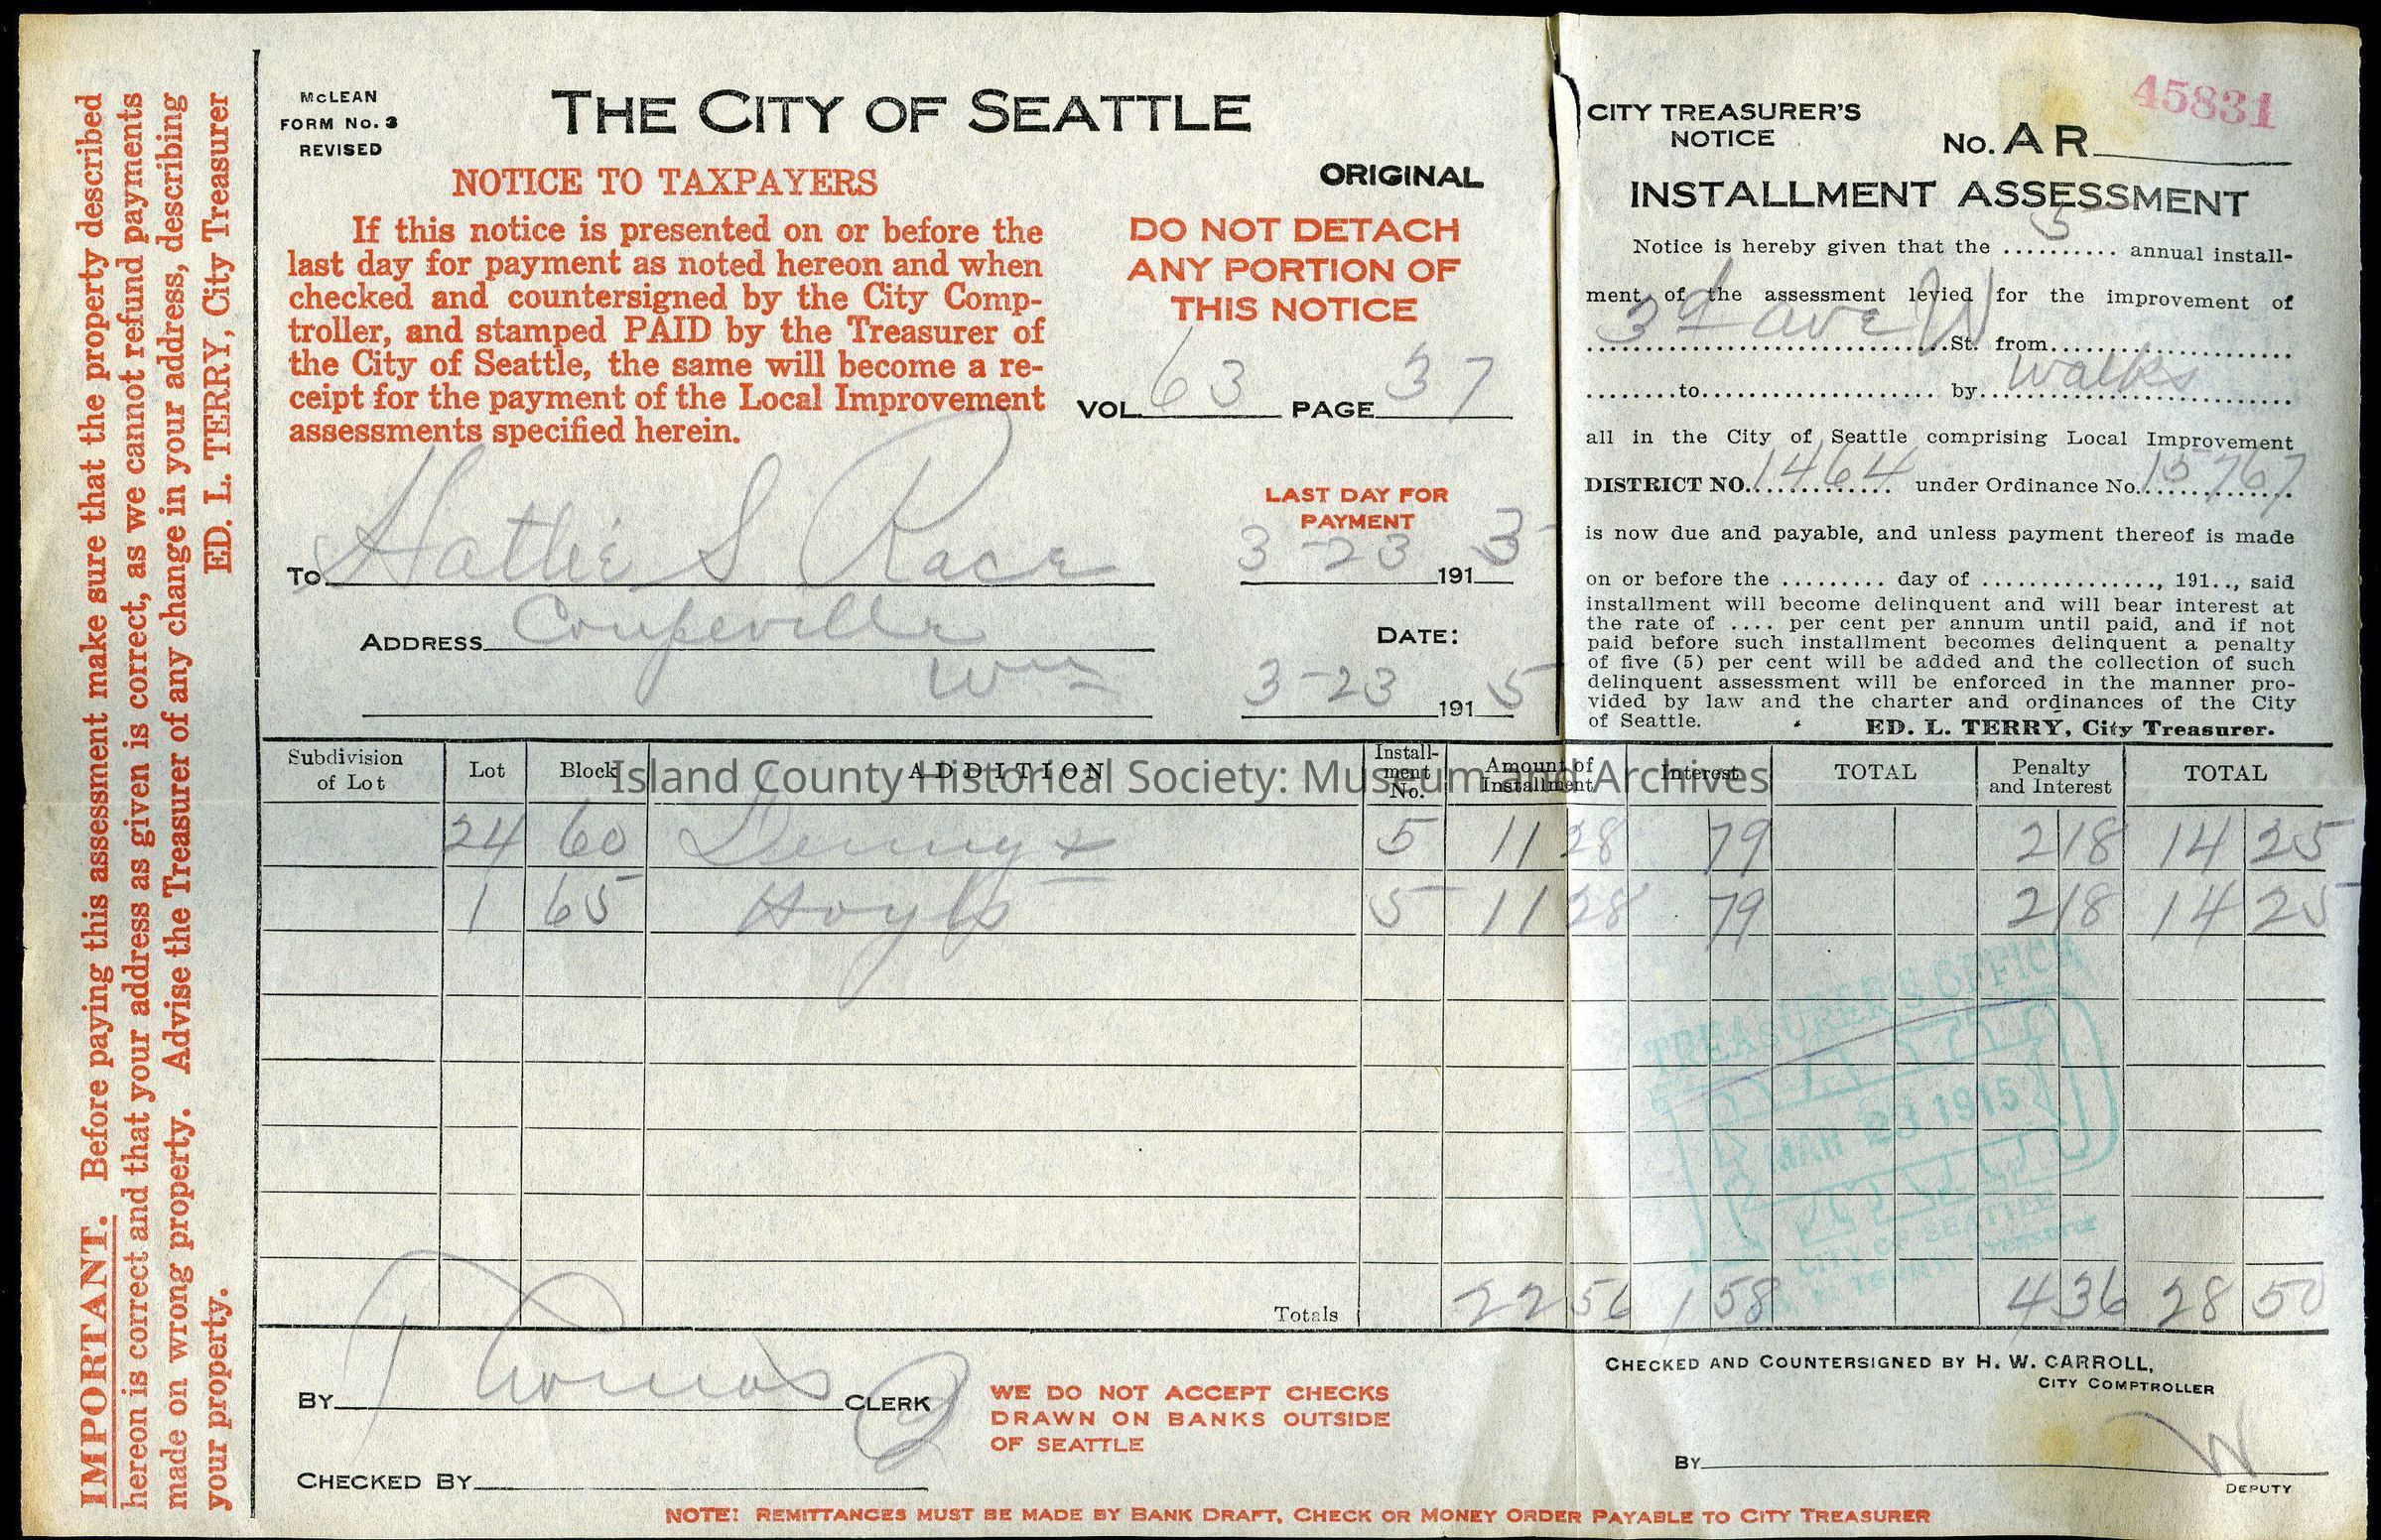 IMPORTANT. Before paying this assessment make sure that the property described
hereon is correct and that your address as given is correct, as we cannot refund payments
made on wrong property. Advise the Treasurer of any change in your address, describing
your property. ED. L. TERRY, City Treasurer
McLEAN
FORM No. 3
REVISED
THE CITY OF SEATTLE
NOTICE TO TAXPAYERS
If this notice is presented on or before the
last day for payment as noted hereon and when
checked and countersigned by the City Comp-
troller, and stamped PAID by the Treasurer of
the City of Seattle, the same will become a re-
ceipt for the payment of the Local Improvement
assessments specified herein.
ORIGINAL
DO NOT DETACH
ANY PORTION OF
THIS NOTICE
VOL. 63 PAGE 37
To Hattie S Race
LAST DAY FOR
PAYMENT
3-23 191 3
ADDRESS Coupeville
Wn
DATE:
3-23 191 5
CITY TREASURER'S
NOTICE
No. AR 45831
INSTALLMENT ASSESSMENT
Notice is hereby given that the 5 annual install-
ment of the assessment levied for the improvement of
3d ave W St. from
to by walks
all in the City of Seattle comprising Local Improvement
DISTRICT NO. 1464 under Ordinance No. 15767
is now due and payable, and unless payment thereof is made
on or before the ......... day of ..............., 191.., said
installment will become delinquent and will bear interest at
the rate of .... per cent per annum until paid, and if not
paid before such installment becomes delinquent a penalty
of five (5) per cent will be added and the collection of such
delinquent assessment will be enforced in the manner pro-
vided by law and the charter and ordinances of the City
of Seattle. ED. L. TERRY, City Treasurer.
Subdivision of Lot Lot Block ADDITION Install-ment No. Amount of Installment Interest TOTAL Penalty and Interest TOTAL
Island County Historical Society: Museum and Archives
24 60 Denny & 5 11 28 79 2 18 14 25
1 65 Hoyts 5 11 28 79 2 18 14 25
TREASURER'S OFFICE
MAR 23 1915
CITY OF SEATTLE
TERRY Treasurer
Totals 22 56 1 58 4 36 28 50
BY Thomas CLERK
WE DO NOT ACCEPT CHECKS
DRAWN ON BANKS OUTSIDE
OF SEATTLE
CHECKED BY
CHECKED AND COUNTERSIGNED BY H. W. CARROLL,
CITY COMPTROLLER
BY W
DEPUTY
NOTE: REMITTANCES MUST BE MADE BY BANK DRAFT, CHECK OR MONEY ORDER PAYABLE TO CITY TREASURER